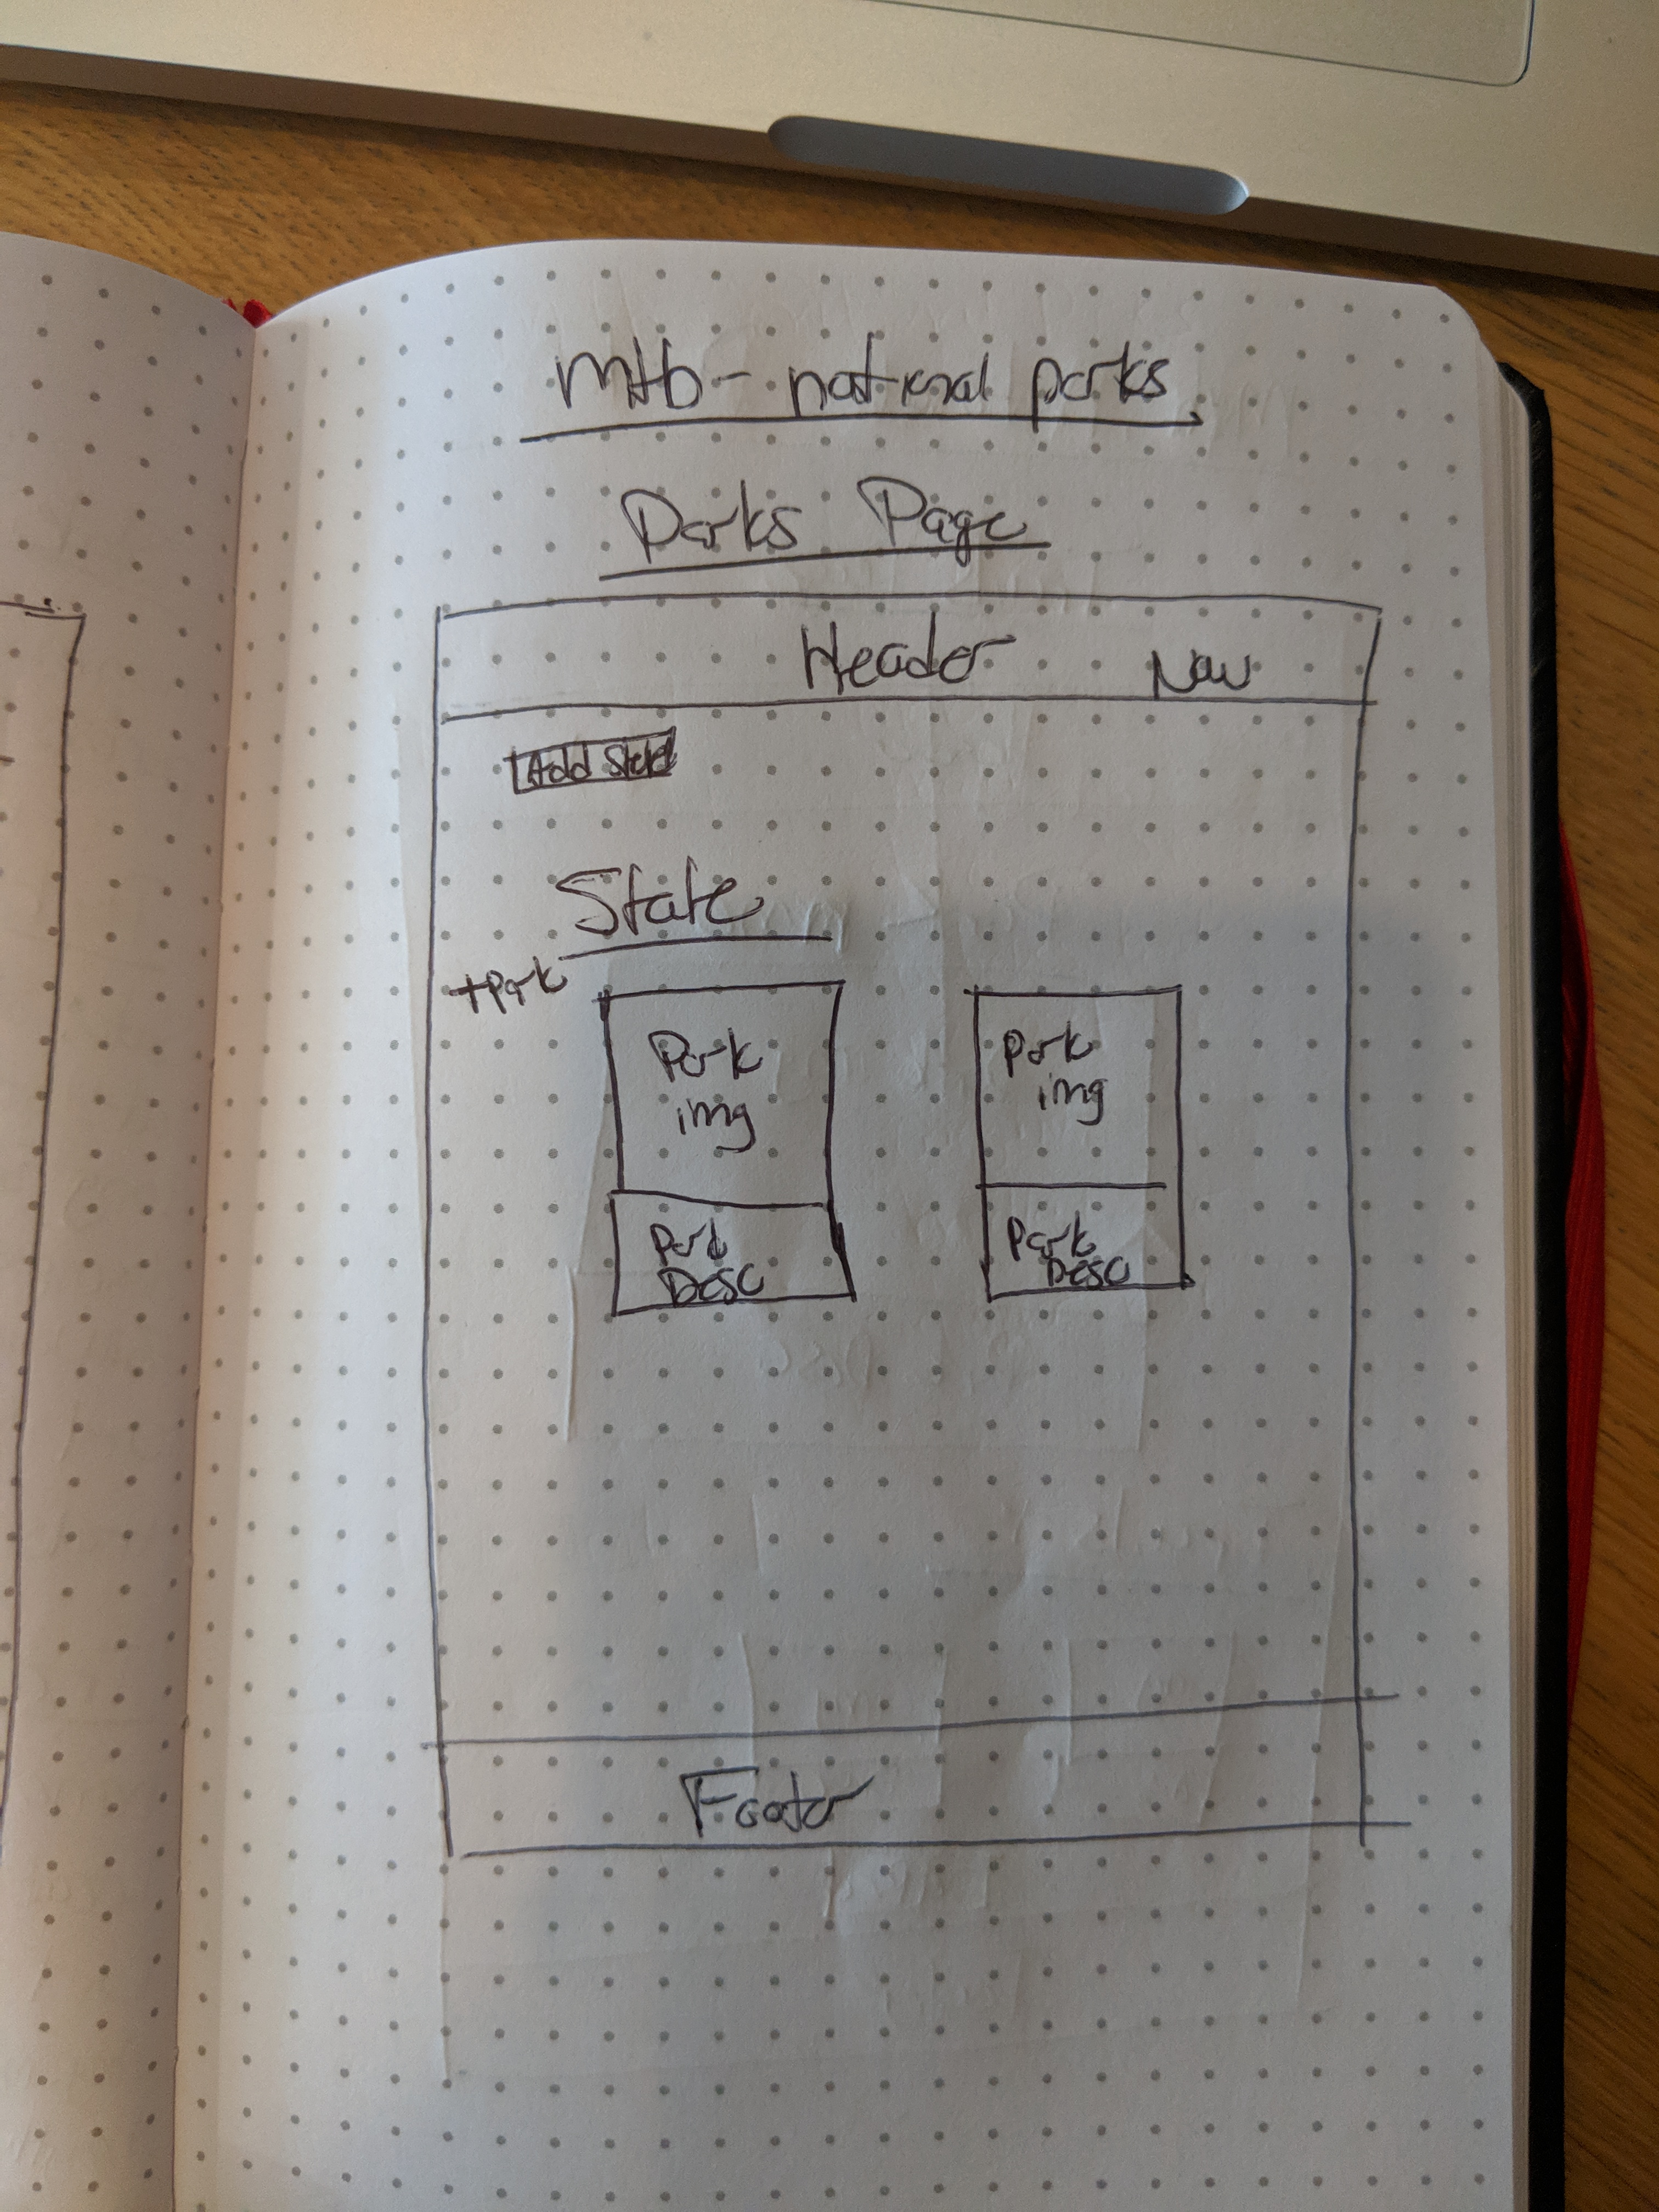 mtb - national parks
Parks Page
Header Nav
Add State
State
+Park
Park
img
Park
img
Park
Desc
Park
Desc
Footer